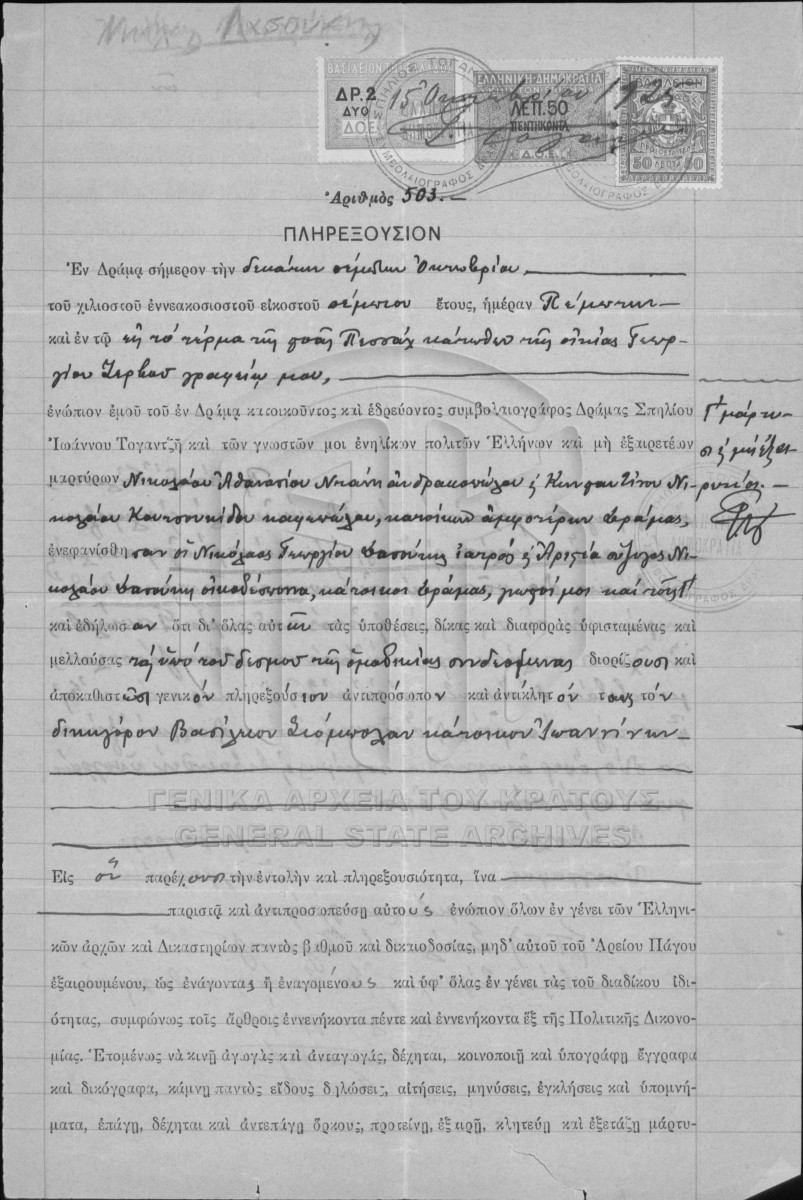 ΒΑΣΙΛΕΙΟΝ ΤΗΣ ΕΛΛΑΔΟΣ
ΔΡ.2
ΔΥΟ
Δ.Ο.Ε.
ΕΛΛΗΝΙΚΗ ΔΗΜΟΚΡΑΤΙΑ
ΛΕΠ.50
ΠΕΝΤΗΚΟΝΤΑ
Δ.Ο.Ε.
ΒΑΣΙΛΕΙΟΝ
50 ΛΕΠΤΑ 50
15 Οκτωβρίου 1925
Ἀριθμὸς 503.—
ΠΛΗΡΕΞΟΥΣΙΟΝ
Ἐν Δράμᾳ σήμερον τὴν δεκάτην πέμπτην Ὀκτωβρίου
τοῦ χιλιοστοῦ ἐννεακοσιοστοῦ εἰκοστοῦ πέμπτου ἔτους, ἡμέραν Πέμπτην
καὶ ἐν τῷ εἰς τὸ τέρμα τῆς στοᾶς Πεσσὰχ κάτωθεν τῆς οἰκίας Γεωρ-
γίου Ζερβοῦ γραφείῳ μου,
ἐνώπιον ἐμοῦ τοῦ ἐν Δράμᾳ κατοικοῦντος καὶ ἑδρεύοντος συμβολαιογράφος Δράμας Σπηλίου
Ἰωάννου Τογαντζῆ καὶ τῶν γνωστῶν μοι ἐνηλίκων πολιτῶν Ἑλλήνων καὶ μὴ ἐξαιρετέων
μαρτύρων Νικολάου Ἀθανασίου ἀνδρακοπώλου καὶ Κωνσταντίνου Νι-
κολάου Κουτσουκίδου καφεπώλου, κατοίκων ἀμφοτέρων Δράμας,
ἐνεφανίσθησαν οἱ Νικόλαος Γεωργίου ἰατρός καὶ Ἀριστέα σύζυγος Νι-
κολάου οἰκοδέσποινα, κάτοικοι Δράμας, γνωστοί μοι καὶ τοῖς
μάρτυ-
σι καὶ μὴ ἐξαι-
ρετέοι.—
καὶ ἐδήλωσαν ὅτι δι' ὅλας αὐτῶν τὰς ὑποθέσεις, δίκας καὶ διαφορὰς ὑφισταμένας καὶ
μελλούσας τὰς ὑπὸ τοῦ δεσμοῦ τῆς ὁμοδικίας συνδεομένας διορίζουσι καὶ
ἀποκαθιστῶσι γενικόν πληρεξούσιον ἀντιπρόσωπον καὶ ἀντίκλητόν τους τόν
δικηγόρον Βασίλειον κάτοικον Ἰωαννίνων
ΓΕΝΙΚΑ ΑΡΧΕΙΑ ΤΟΥ ΚΡΑΤΟΥΣ
GENERAL STATE ARCHIVES
Εἰς ὅν παρέχουσι τὴν ἐντολὴν καὶ πληρεξουσιότητα, ἵνα
παριστᾷ καὶ ἀντιπροσωπεύσῃ αὐτούς ἐνώπιον ὅλων ἐν γένει τῶν Ἑλληνι-
κῶν ἀρχῶν καὶ Δικαστηρίων παντὸς βαθμοῦ καὶ δικαιοδοσίας, μηδ' αὐτοῦ τοῦ Ἀρείου Πάγου
ἐξαιρουμένου, ὡς ἐνάγοντας ἢ ἐναγομένους καὶ ὑφ' ὅλας ἐν γένει τὰς τοῦ διαδίκου ἰδι-
ότητας, συμφώνως τοῖς ἄρθροις ἐννενήκοντα πέντε καὶ ἐννενήκοντα ἕξ τῆς Πολιτικῆς Δικονο-
μίας. Ἑπομένως νὰ κινῇ ἀγωγὰς καὶ ἀνταγωγάς, δέχηται, κοινοποιῇ καὶ ὑπογράφῃ ἔγγραφα
καὶ δικόγραφα, κάμνῃ παντὸς εἴδους δηλώσεις, αἰτήσεις, μηνύσεις, ἐγκλήσεις καὶ ὑπομνή-
ματα, ἐπάγῃ, δέχηται καὶ ἀντεπάγῃ ὅρκους, προτείνῃ, ἐξαιρῇ, κλητεύῃ καὶ ἐξετάζῃ μάρτυ-